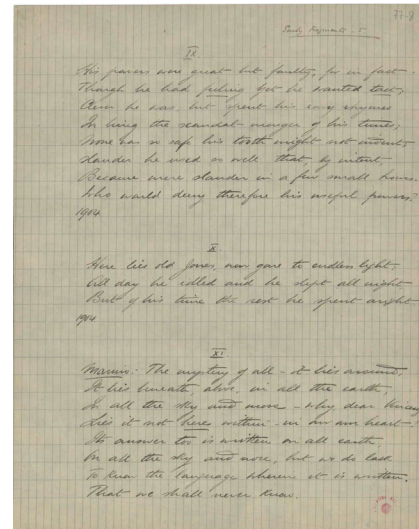 77-8
Early Fragments - 5
IX.
His powers were great but faulty, for in fact
Though he had feeling yet he wanted tact;
he was, but spent his easy rhymes
In being the scandal monger of his times;
None was so safe his tooth might not
Slander he used so well that by intent
Became mere slander in a few small hours.
Who would deny therefore his useful powers?
1904
X.
Here lies old Jones, now gone to endless light;
All day he idled and he slept all night
But of his time the rest he spent aright
1904
XI.
Marino: The mystery of all - it lies around,
It lies beneath, above, in all the earth,
In all the sky and more - why dear
Lies it not here within - in our own heart -?
Its answer too is written on all earth
On all the sky and more, but we do lack
To know the language wherein it is written.
That we shall never know.